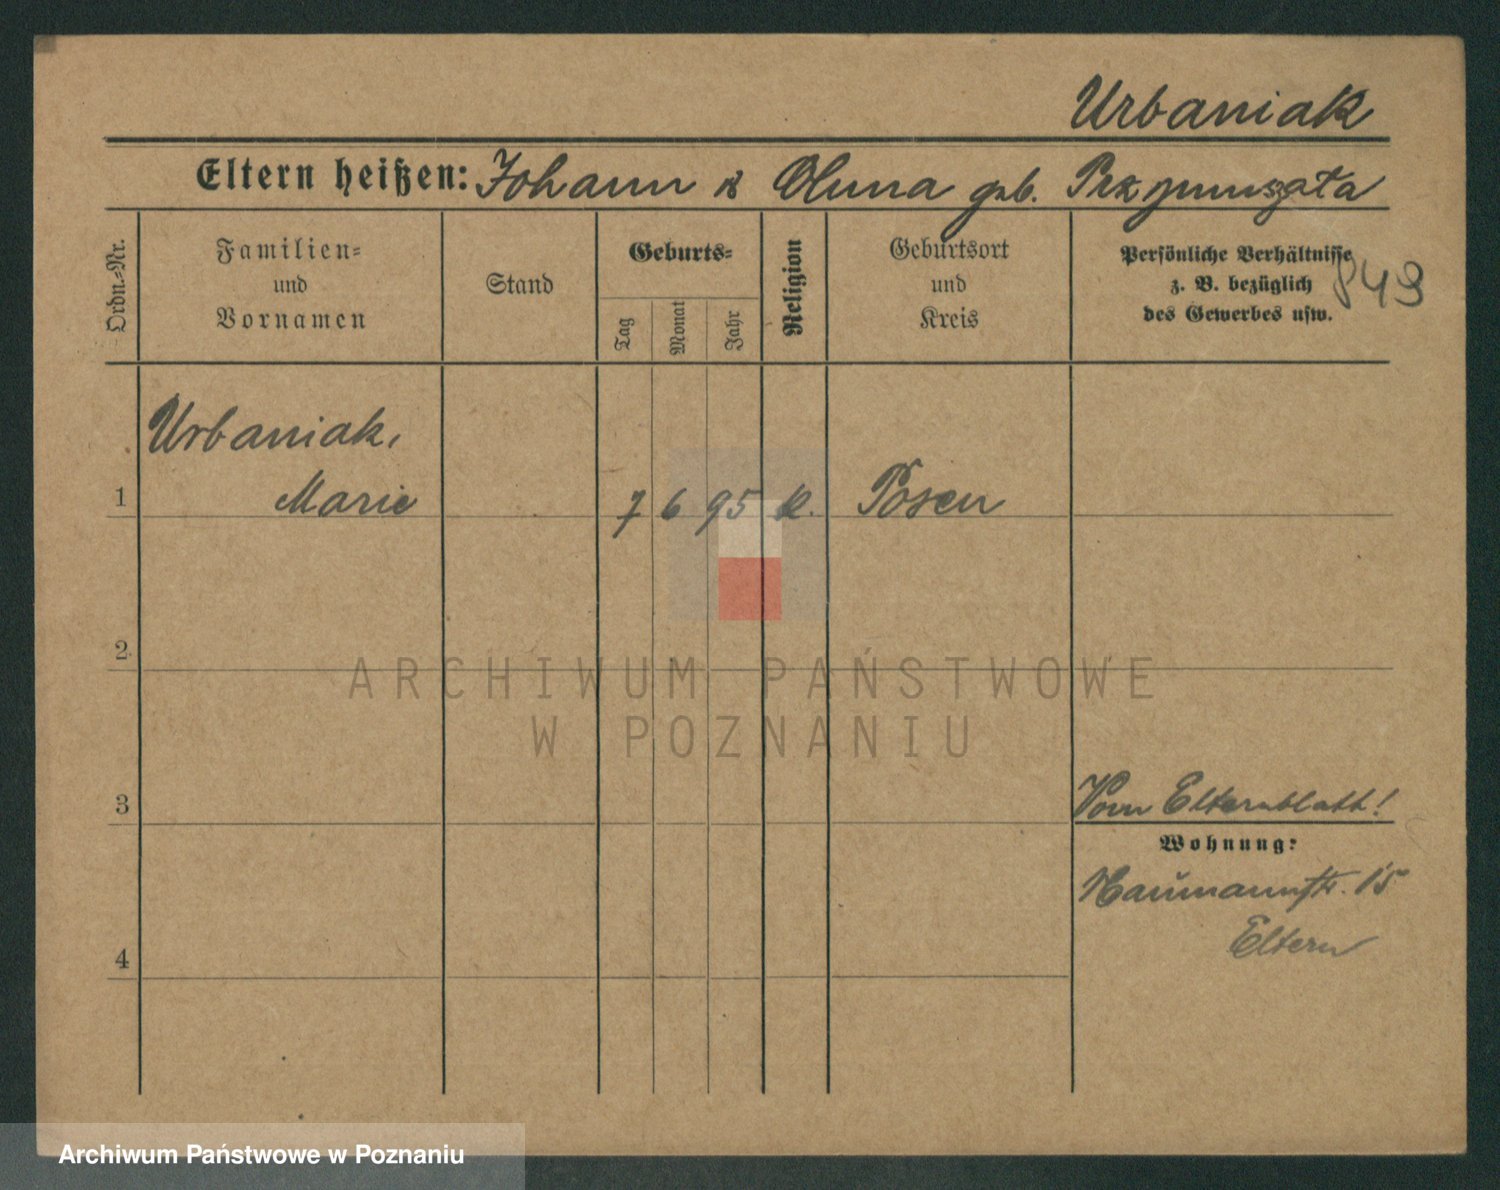 Urbaniak
Eltern heißen: Johann & Anna geb. Przymuszała
Ordn.-Nr.
Familien-
und
Vornamen
Stand
Geburts-
Tag
Monat
Jahr
Religion
Geburtsort
und
Kreis
Persönliche Verhältnisse
z. B. bezüglich
des Gewerbes usw.
849
Urbaniak,
1 Marie 7 6 95 K. Posen
2
ARCHIWUM PAŃSTWOWE
W POZNANIU
3 Vom Elternblatt!
Wohnung:
Naumannstr. 15
Eltern
4
Archiwum Państwowe w Poznaniu